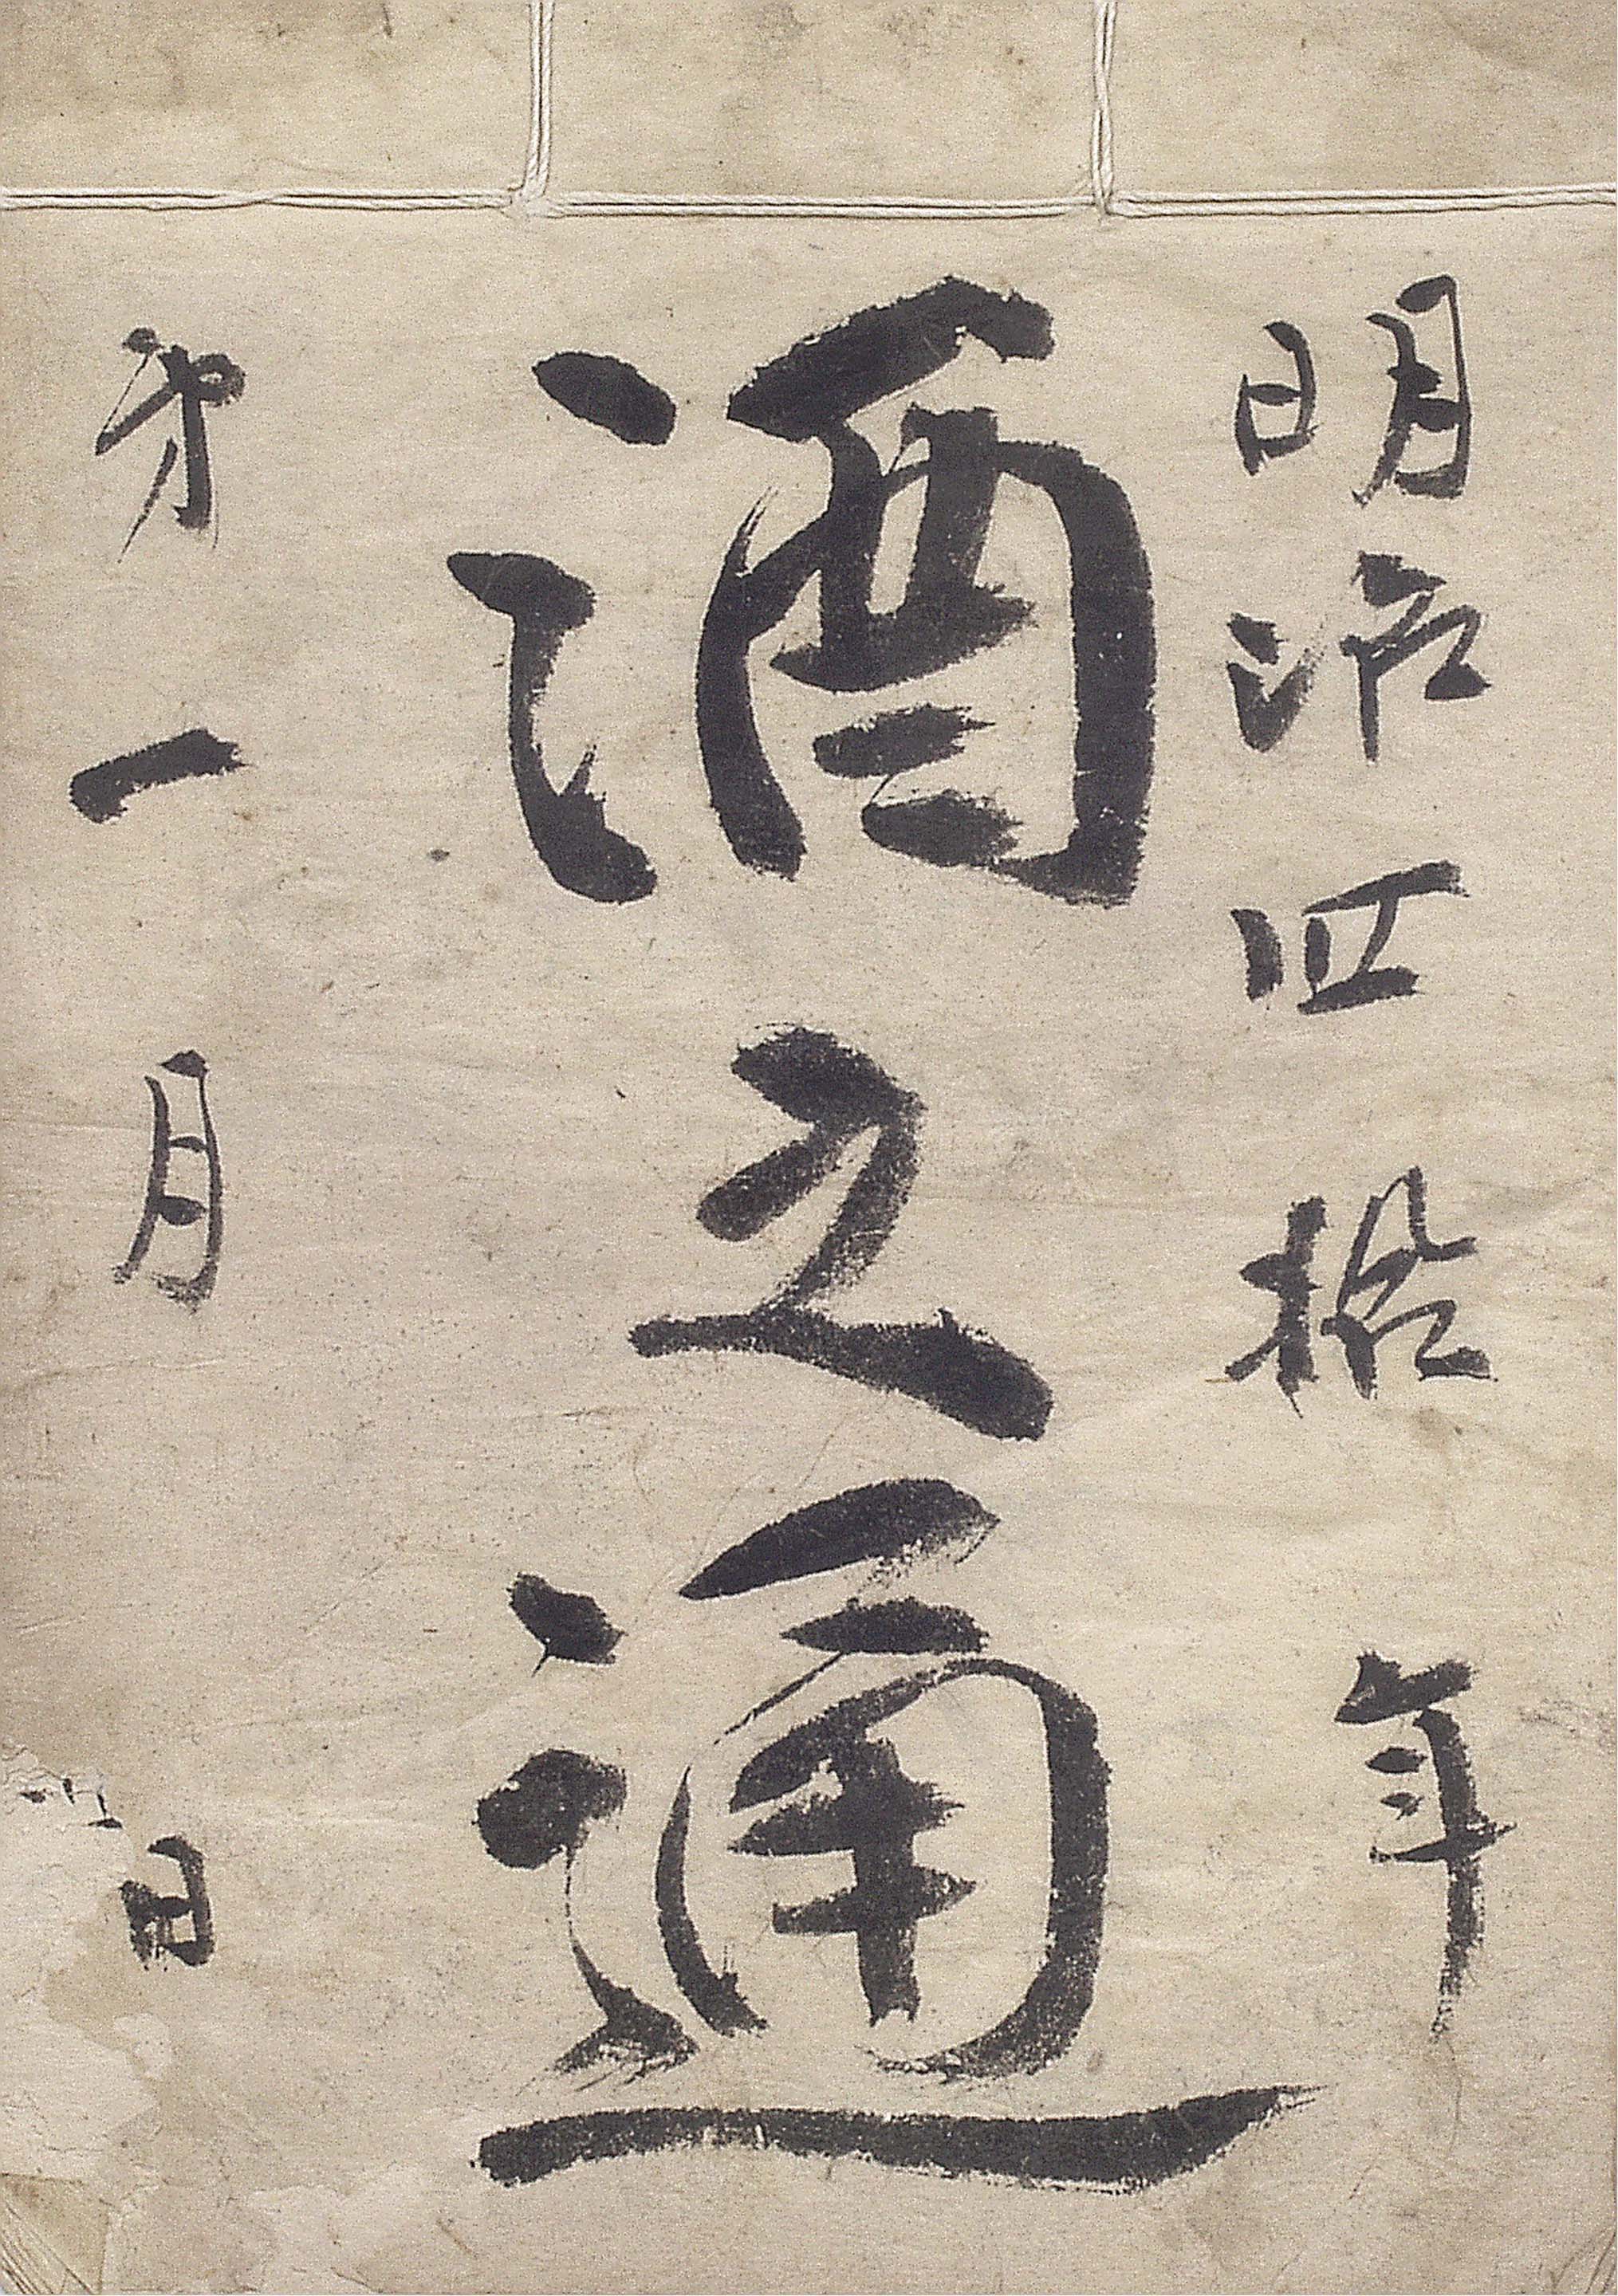 明治四拾年
酒之通
第一月日